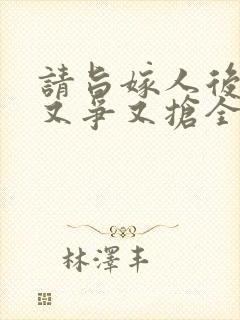 請旨嫁人後
又爭又搶全
林澤丰